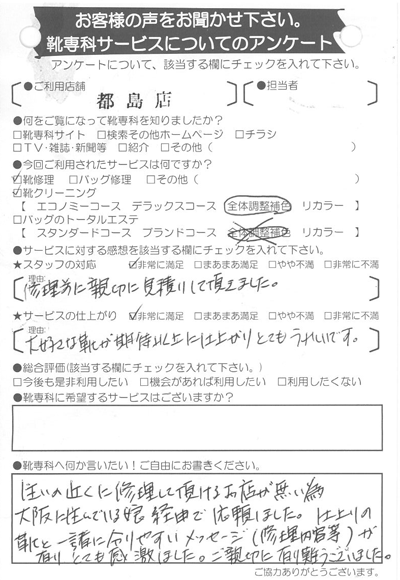 お客様の声をお聞かせ下さい。
靴専科サービスについてのアンケート
アンケートについて、該当する欄にチェックを入れて下さい。
●ご利用店舗 ●担当者
都島店
●何をご覧になって靴専科を知りましたか?
□靴専科サイト □検索その他ホームページ □チラシ
□TV・雑誌・新聞等 □紹介 □その他( )
●今回ご利用されたサービスは何ですか?
☑靴修理 □バッグ修理 □その他( )
☑靴クリーニング
【 エコノミーコース デラックスコース 全体調整補色 リカラー 】
□バッグのトータルエステ
【 スタンダードコース ブランドコース 全体調整補色 リカラー 】
●サービスに対する感想を該当する欄にチェックを入れて下さい。
★スタッフの対応 ☑非常に満足 □まあまあ満足 □やや不満 □非常に不満
理由:
修理前に親切に見積りして頂きました。
★サービスの仕上がり ☑非常に満足 □まあまあ満足 □やや不満 □非常に不満
理由:
大好きな靴が期待以上に仕上がりとてもうれしいです。
●総合評価(該当する欄にチェックを入れて下さい。)
□今後も是非利用したい □機会があれば利用したい □利用したくない
●靴専科に希望するサービスはございますか?
●靴専科へ何か言いたい!ご自由にお書きください。
住いの近くに修理して頂けるお店が無い為
大阪に住んでいる娘経由で依頼しました。仕上りの
靴と一諸に分りやすいメッセージ(修理内容等)が
有り とても感激しました。ご親切に有り難うございました。
ご協力ありがとうございます。